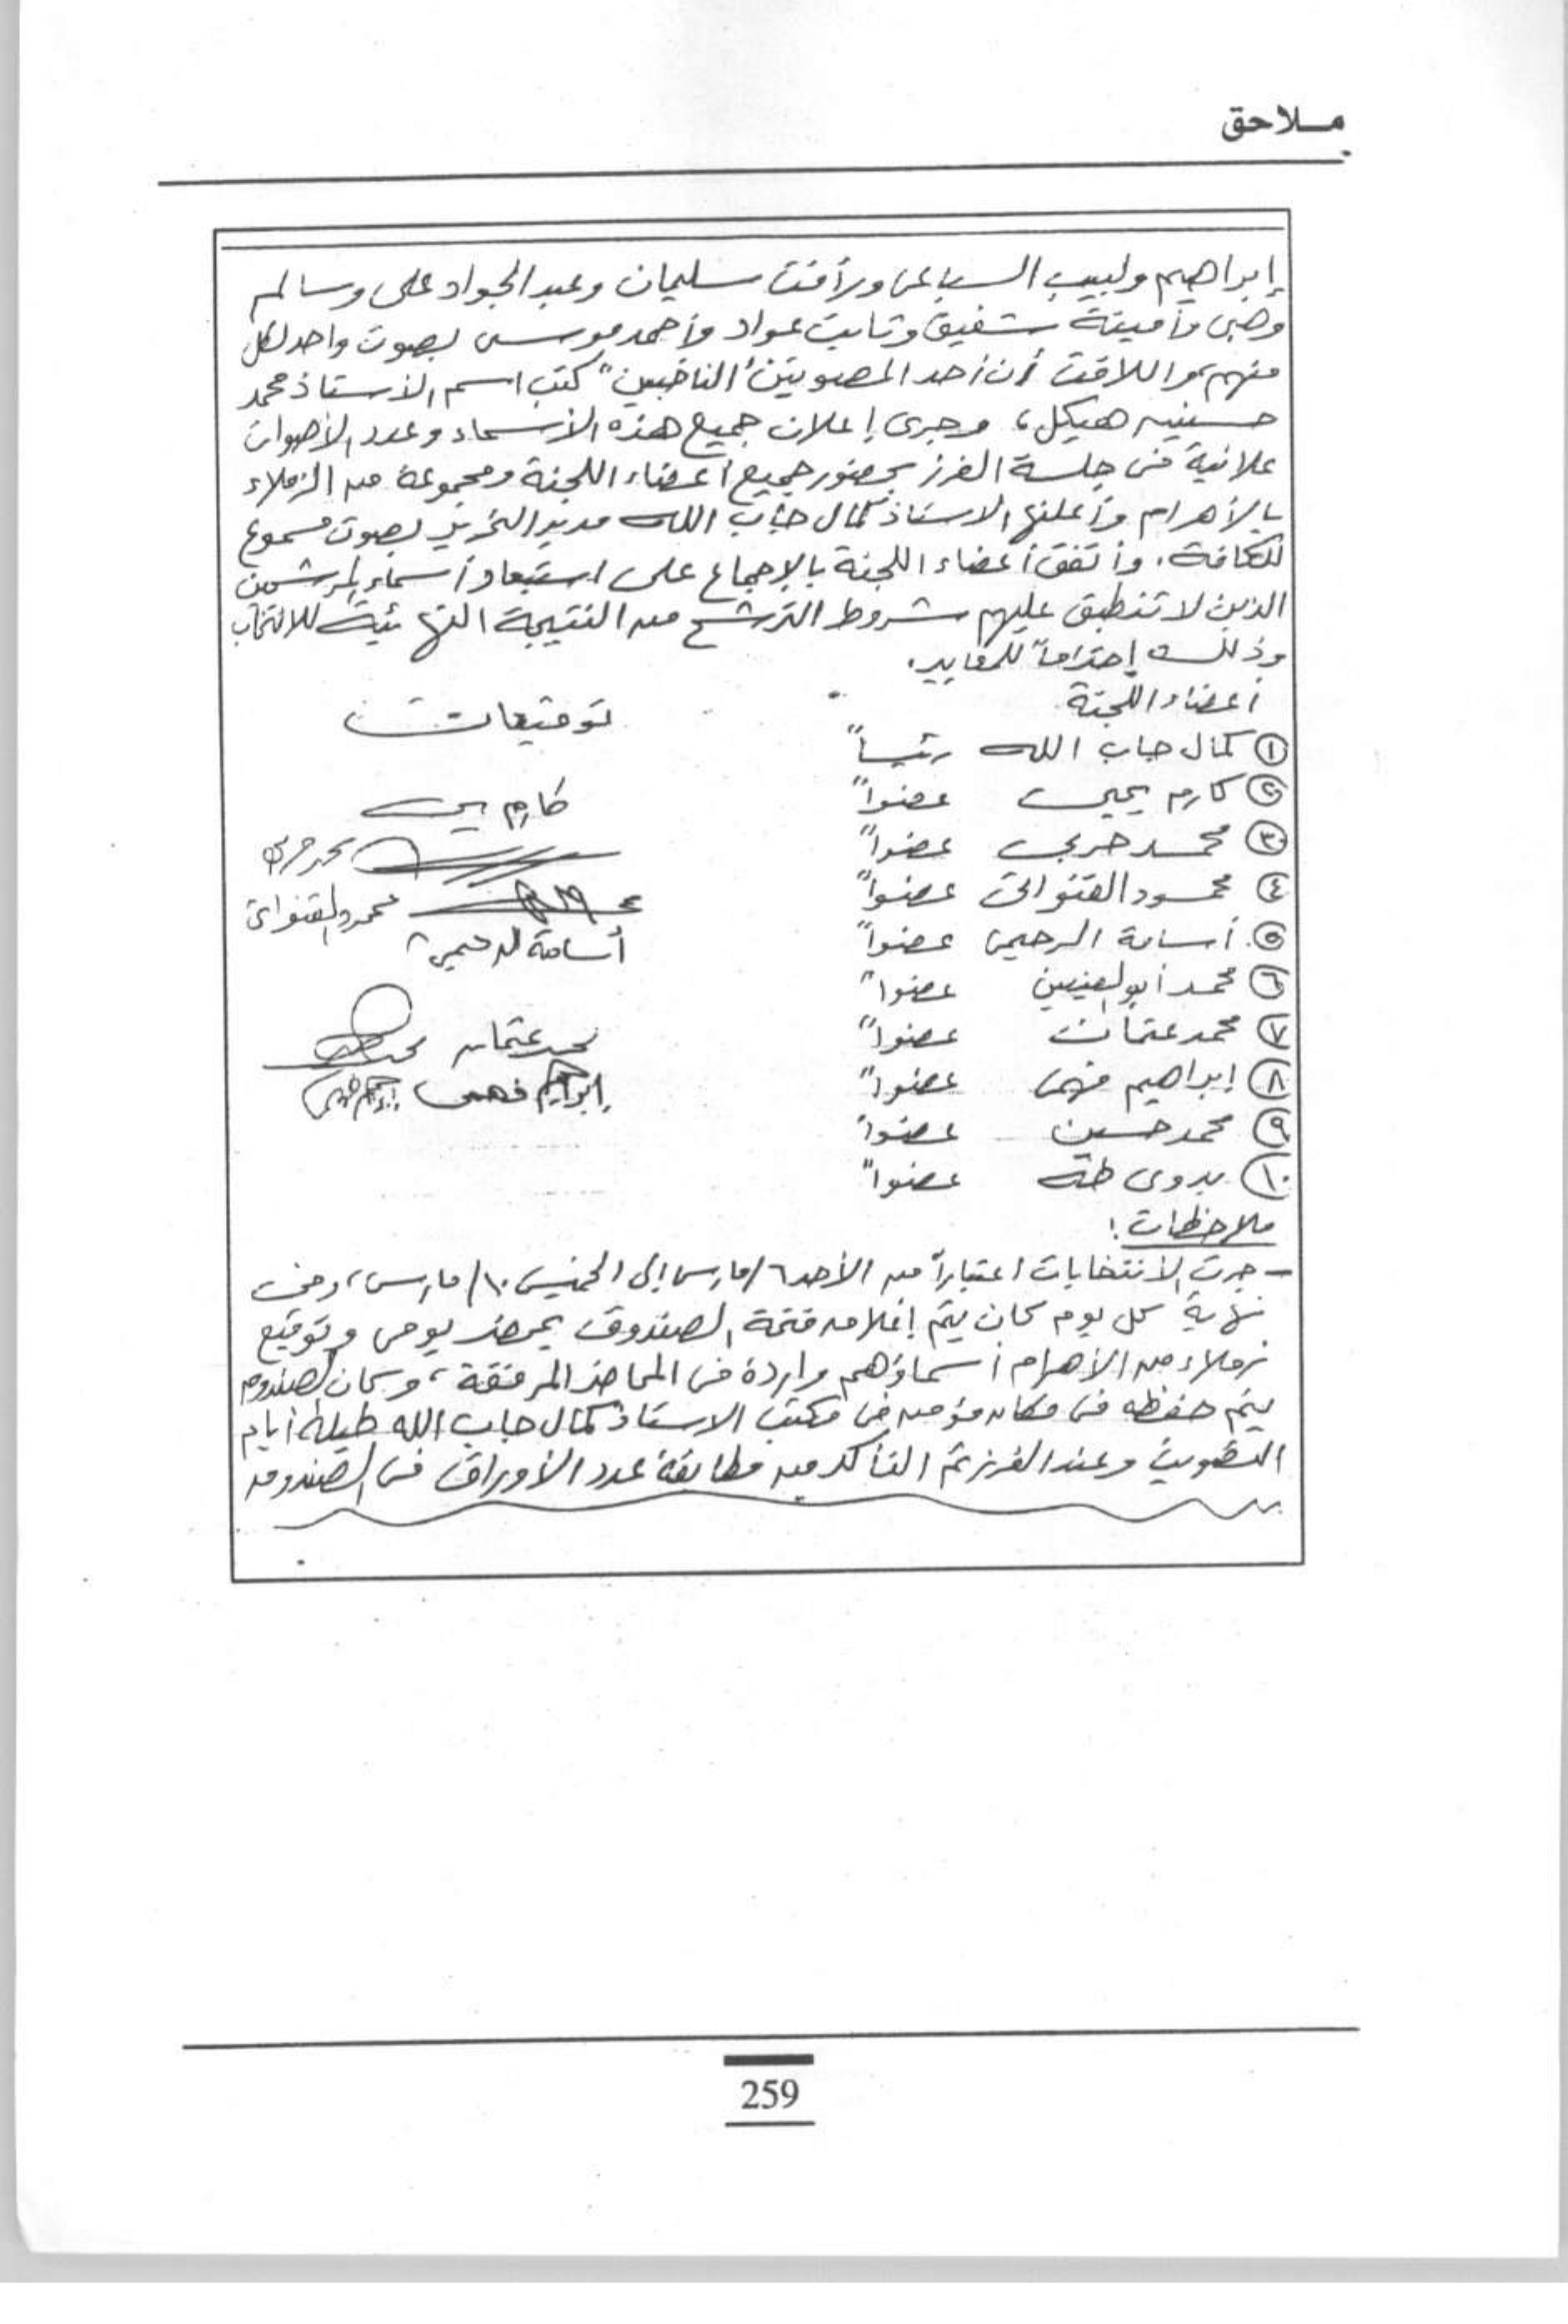 ملاحق
إبراهيم ولبيب السباعى ورأفت سليمان وعبد الجواد على وسالم
وهبى وأمينة شفيق وثابت عواد وأحمد موسى بصوت واحد لكل
منهم، واللافت أن أحد المصوتين "الناخبين" كتب اسم الأستاذ محمد
حسنين هيكل، وجرى إعلان جميع هذه الأسماء وعدد الأصوات
علانية فى جلسة الفرز بحضور جميع أعضاء اللجنة ومجموعة من الزملاء
بالأهرام وأعلنها الأستاذ كمال جاب الله مدير التحرير بصوت مسموع
للكافة. وأتفق أعضاء اللجنة بالإجماع على استبعاد أسماء المرشحين
الذين لا تنطبق عليهم شروط الترشح من النتيجة النهائية للانتخاب
وذلك إحتراماً للمعايير.
أعضاء اللجنة
توقيعات
① كمال جاب الله رئيساً
② كارم يحيى عضواً
كارم يحيى
③ محمد حربى عضواً
محمد حربى
④ محمود القنواتى عضواً
محمود القنواتى
⑤ أسامة الرحيمى عضواً
أسامة الرحيمى
⑥ محمد أبو العينين عضواً
⑦ محمد عثمان عضواً
محمد عثمان
⑧ إبراهيم فهمى عضواً
إبراهيم فهمى
⑨ محمد حسين عضواً
⑩ بدوى طه عضواً
ملاحظات:
- جرت الانتخابات اعتباراً من الأحد ٦/مارس إلى الخميس ١٠/مارس، وفى
نهاية كل يوم كان يتم إغلاق فتحة الصندوق بمحضر يومى وتوقيع
زملاء من الأهرام أسماؤهم واردة فى المحاضر المرفقة، وكان الصندوق
يتم حفظه فى مكان مؤمن فى مكتب الاستاذ كمال جاب الله طيلة أيام
التصويت وعند الفرز تم التأكد من مطابقة عدد الأوراق فى الصندوق
259